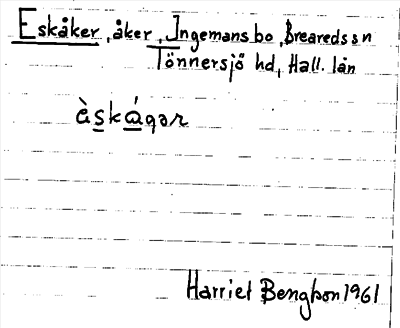 Eskåker, åker, Ingemansbo, Breareds sn
Tönnersjö hd, Hall. län
àskágar
Harriet Bengtson 1961